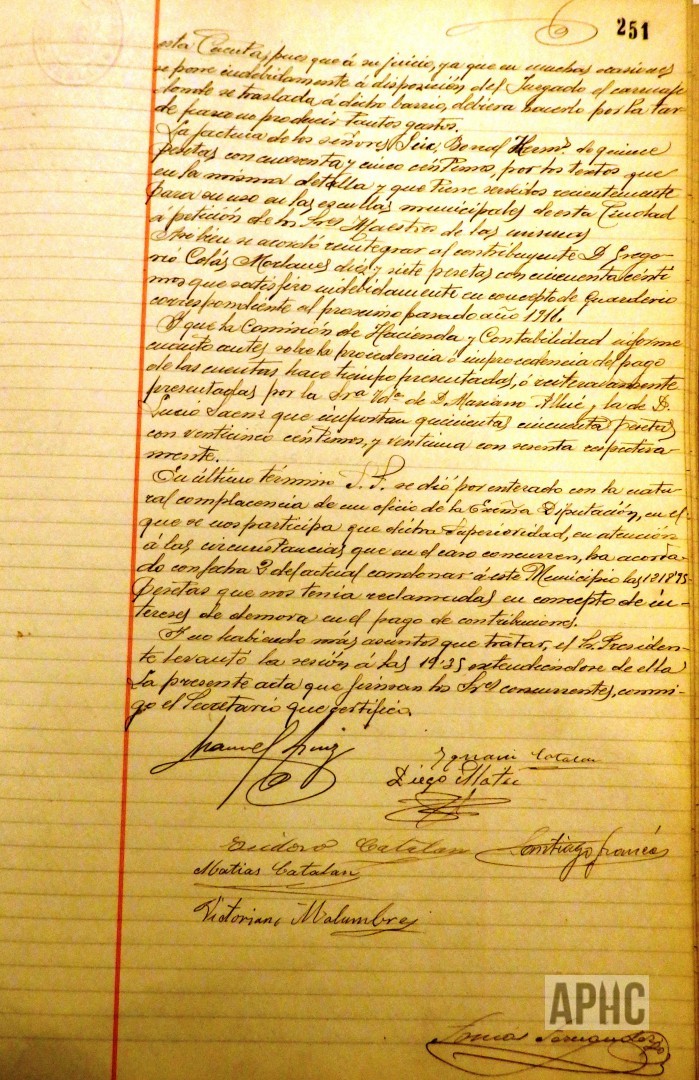 251
esta Cuenta, pues que á su juicio, ya que en muchas ocasiones
se pone indebidamente á disposición del Juzgado el carruaje
donde se traslada á dicho barrio, debiera hacerlo por la tar-
de para no producir tantos gastos.
La factura de los señores Bernal Herms de quince
pesetas con cuarenta y cinco céntimos, por los textos que
en la misma detalla y que tiene servidos recientemente
para su uso en las escuelas municipales de esta Ciudad
á petición de los Sres Maestros de las mismas
Tambien se acordó reintegrar al contribuyente D. Grego-
rio Celás diez y siete pesetas con cincuenta cénti-
mos que satisfizo indebidamente en concepto de Guarderio
correspondiente al proximo pasado año 1911.
Y que la Comisión de Hacienda y Contabilidad informe
cuanto antes sobre la procedencia ó improcedencia del pago
de las cuentas hace tiempo presentadas, ó reiteradamente
presentadas por la Sra Vda de D. Mariano y la de D.
Lucio Saenz que importan quinientas cincuenta pesetas
con venticinco céntimos, y ventiuna con sesenta respectiva-
mente.
En último término S. S. se dió por enterado con la natu-
ral complacencia de un oficio de la Exema Diputación, en el
que se nos participa que dicha Superioridad, en atención
á las circunstancias que en el caso concurren, ha acorda-
do con fecha 3 del actual condonar á este Municipio las 1218'95
pesetas que nos tenia reclamadas en concepto de in-
tereses de demora en el pago de contribuciones.
Y no habiendo más asuntos que tratar, el Sr. Presiden-
te levantó la sesión á las 19'35 extendiendose de ella
la presente acta que firman los Sres concurrentes, conmi-
go el Secretario que certifico.
Manuel Ruiz
Catalan
Diego Mateo
Isidoro Catalan
Santiago Francés
Matias Catalan
Victoriano Malumbres
APHC
Fernandez